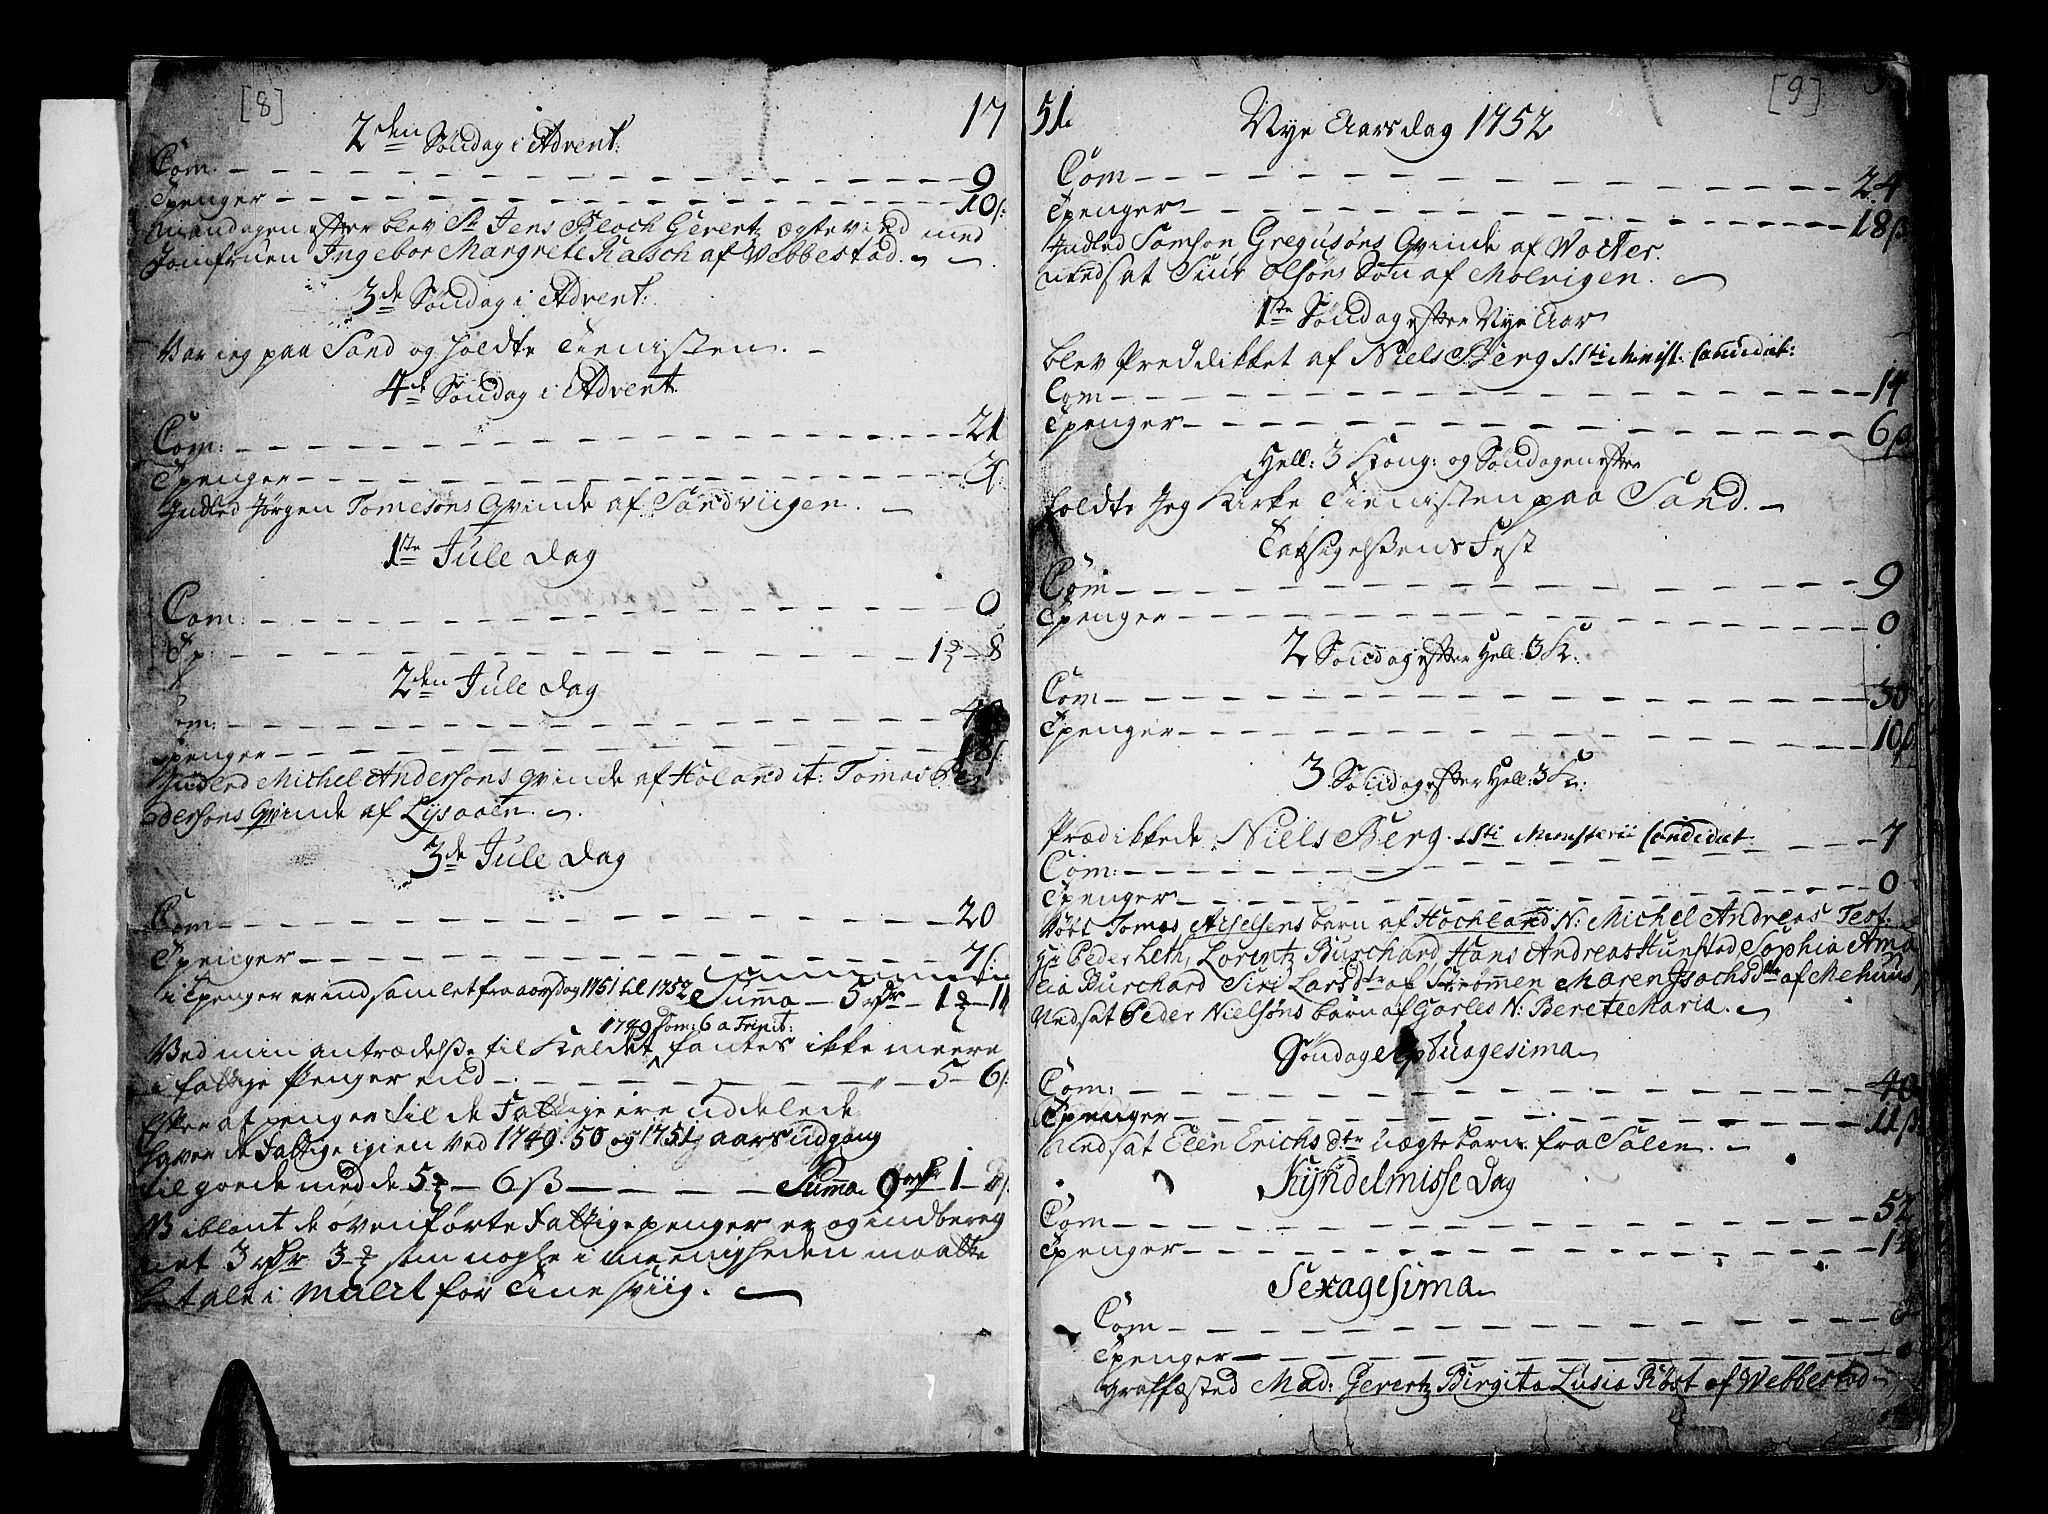 [8]
17
2den Søndag i Advent:
Com. 9
Tpenger 10ß:
Mandagen efter blev Sr Jens Bloch Gerertz ægtevied med
Jomfruen Ingebor Margrete Rasch af Webbestad.
3de Søndag i Advent:
Var jeg paa Sand og holdte Tienisten.
4de Søndag i Advent:
Com: 21
Tpenger 3ß:
Indled Jørgen Tomesøns Qvinde af Sandviigen.
1ste Jule Dag
Com: 0
Tp: 1 8
2den Jule Dag
Com:
Tpenger 18ß:
Indled Michel Andersøns Qvinde af Høland it: Tomas Pe
dersøns Qvinde af Lysaaen.
3de Jule Dag
Com 20
Tpenger 7ß:
i Tpenger er indsamlet fra aarsdag 1751 til 1752 Summa 5 rdr 1
1749 Dom: 6 a Trinit:
Ved min antrædelse til Kaldet fantes ikke meere
i fattige Penger end 5 6ß:
Efter at penger til de Fattige ere uddelede
haver de Fattige igien ved 1749: 50 og 1751 aars udgang
til goede med de 5 6ß Summa 9 rdr 1
NB iblant de ovenførte Fattige penger er og indbereg
net 3 rdr 3 som nogle i meenigheden maatte
betale i Mulct for Tinesviig.
51.
[9]
Nye Aarsdag 1752
Com 24
Tpenger 18ß
Indled Samson Gregusøns Qvinde af Wocter.
Nedsat Siur Olsøns Søn af Molvigen.
1ste Søndag efter Nye Aar
blev Preddikket af Niels Berg S.Sti Minist. Candidat:
Com 14
Tpenger 6ß
Hell: 3 Kong: og Søndagen efter
holdte Jeg Kirke Tienisten paa Sand.
Taksigelsens Fest
Com 9
Tpenger 0
2 Søndag efter Hell: 3 K:
Com 30
Tpenger 10ß
3 Søndag efter Hell: 3 K:
Prædikkede Niels Berg. S.Sti Ministerii Candidat
Com: 7
Tpenger 0
Døbt Tomas Axelsens barn af Hochland N: Michel Andreas Test:
Hr Peder Leth, Lorentz Burchard, Hans Andreas Kunstad Sophia Ama
lia Burchard Siri Larsdtr af Strømmen Maren Isachsdtr af Mehuus
Nedsat Peder Nielsøns barn af Gorles N: Berete Maria.
Søndag eptuagesima
Com: 40
Tpenger 11ß
Nedsat Elen Erichsdtr uægte barn fra Salen.
Kyndelmisse Dag
Com 52
Tpenger
Sexagesima
Com
Tpenger 0
Graffæsted Mad: Gerertz Birgita Lusia Røst af Webbestad